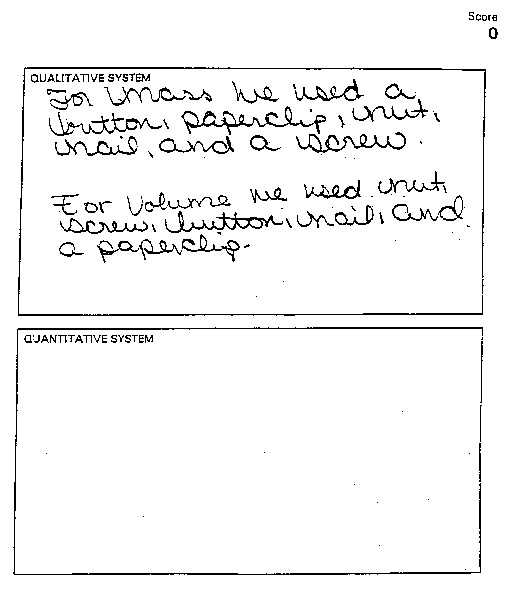 Score
0
QUALITATIVE SYSTEM
For mass we used a
button, paperclip, nut,
nail, and a screw.
For Volume we used nut,
screw, button, nail, and
a paperclip.
QUANTITATIVE SYSTEM